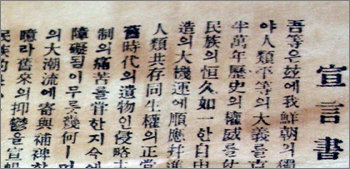 宣言書
吾等은玆에我鮮朝의獨
야人類平等의大義를克
半萬年歷史의權威를仗
民族의恒久如一한自由
造의大機運에順應幷進
人類共存同生權의正當
舊時代의遺物인侵略主
制의痛苦를嘗한지今에
障礙됨이무릇幾何ㅣ
의大潮流에寄與補裨할
噫라舊來의抑鬱을宣暢
民族的